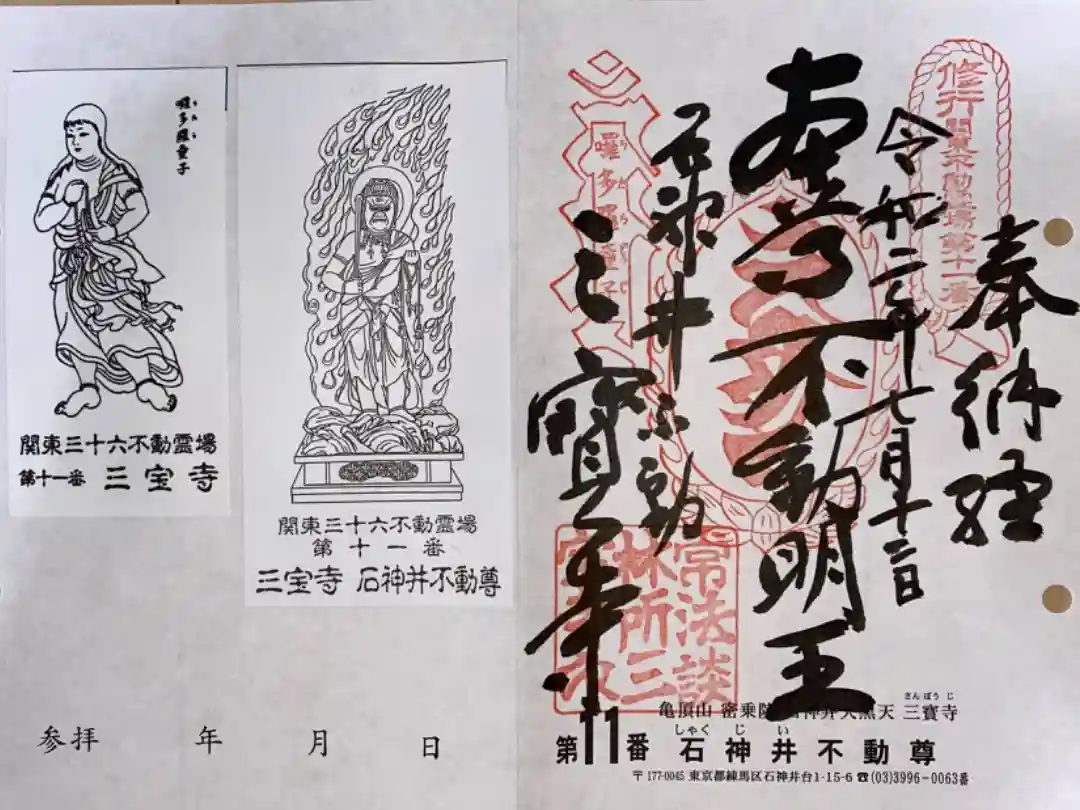 囉多羅童子
関東三十六不動霊場
第十一番 三宝寺
関東三十六不動霊場
第十一番
三宝寺 石神井不動尊
参拝 年 月 日
奉納経
修行関東不動霊場第十一番
令和二年七月
不動明王
石神井不動
三寳寺
囉多羅童子
常法談
林所三
さんぼうじ
亀頂山 密乗院 石神井大黒天 三寶寺
しゃくじい
第11番 石神井不動尊
〒177-0045 東京都練馬区石神井台1-15-6 ☎(03)3996-0063番